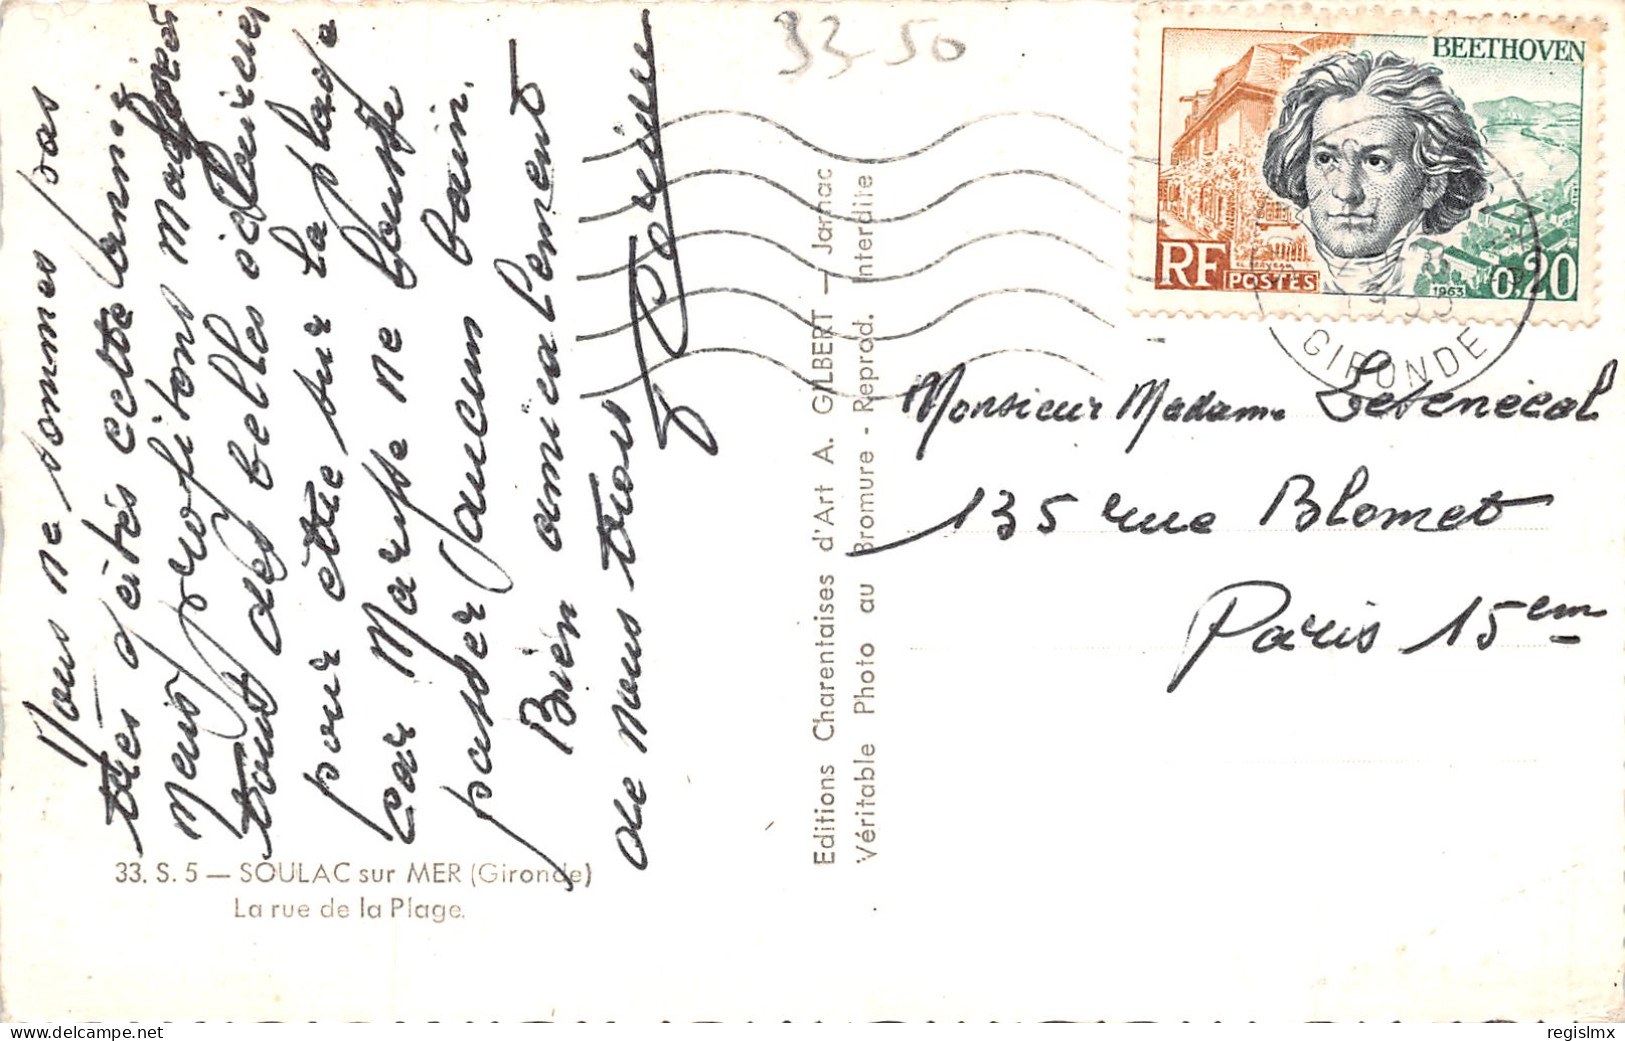 Nous ne sommes pas
très gâtés cette année,
mais profitons malgré
tout des belles éclaircies
pour être sur la plage
car Maryse ne
passer aucun bain.
Bien amicalement
de nous trois
33-50
BEETHOVEN
RF
POSTES
1963
0,20
GIRONDE
Monsieur Madame
135 rue Blomet
Paris 15em
Editions Charentaises d'Art A. GILBERT — Jarnac
Véritable Photo au Bromure - Reprod. Interdite
33. S. 5 — SOULAC sur MER (Gironde)
La rue de la Plage.
regislmx